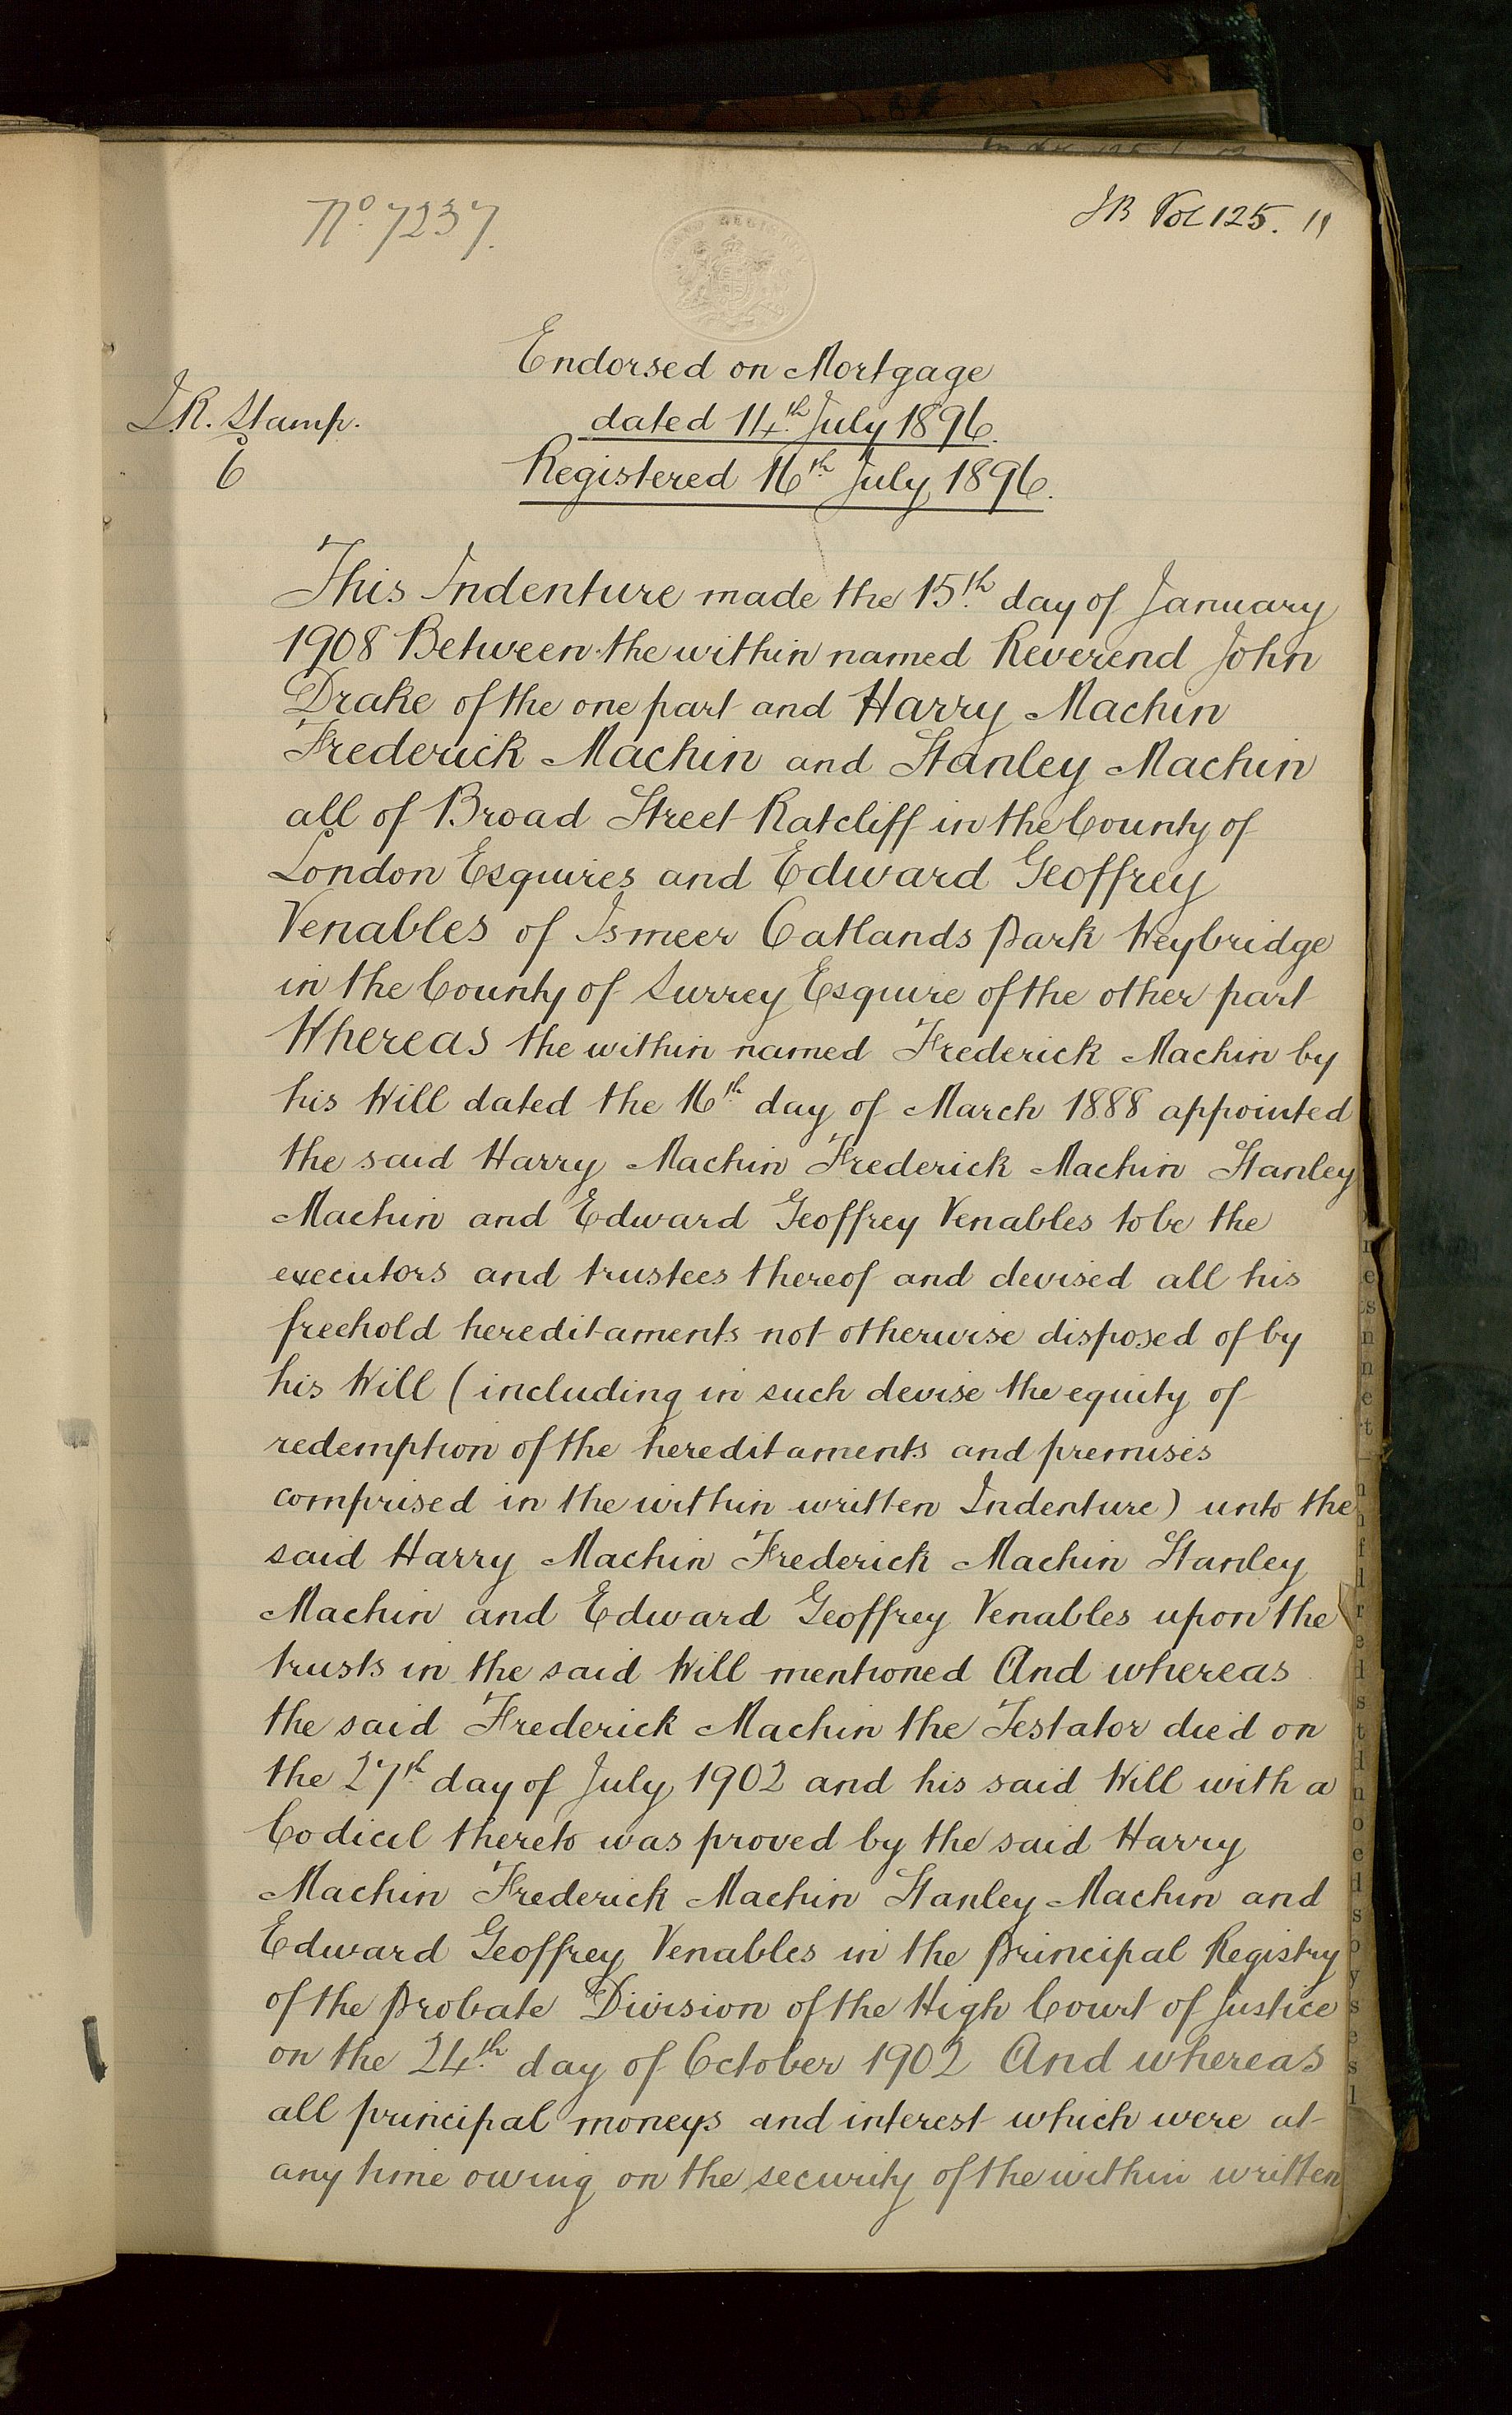 No. 7237.
JB Vol 125. 11
Endorsed on Mortgage
I.R. Stamp.
dated 14th July 1896.
6
Registered 16th July 1896.
This Indenture made the 15th day of January
1908 Between the within named Reverend John
Drake of the one part and Harry Machin
Frederick Machin and Stanley Machin
all of Broad Street Ratcliff in the County of
London Esquires and Edward Geoffrey
Venables of Ismeer Oatlands Park Weybridge
in the County of Surrey Esquire of the other part
Whereas the within named Frederick Machin by
his Will dated the 16th day of March 1888 appointed
the said Harry Machin Frederick Machin Stanley
Machin and Edward Geoffrey Venables to be the
executors and trustees thereof and devised all his
freehold hereditaments not otherwise disposed of by
his Will (including in such devise the equity of
redemption of the hereditaments and premises
comprised in the within written Indenture) unto the
said Harry Machin Frederick Machin Stanley
Machin and Edward Geoffrey Venables upon the
trusts in the said Will mentioned And whereas
the said Frederick Machin the Testator died on
the 27th day of July 1902 and his said Will with a
Codicil thereto was proved by the said Harry
Machin Frederick Machin Stanley Machin and
Edward Geoffrey Venables in the Principal Registry
of the Probate Division of the High Court of Justice
on the 24th day of October 1902 And whereas
all principal moneys and interest which were at
any time owing on the security of the within written